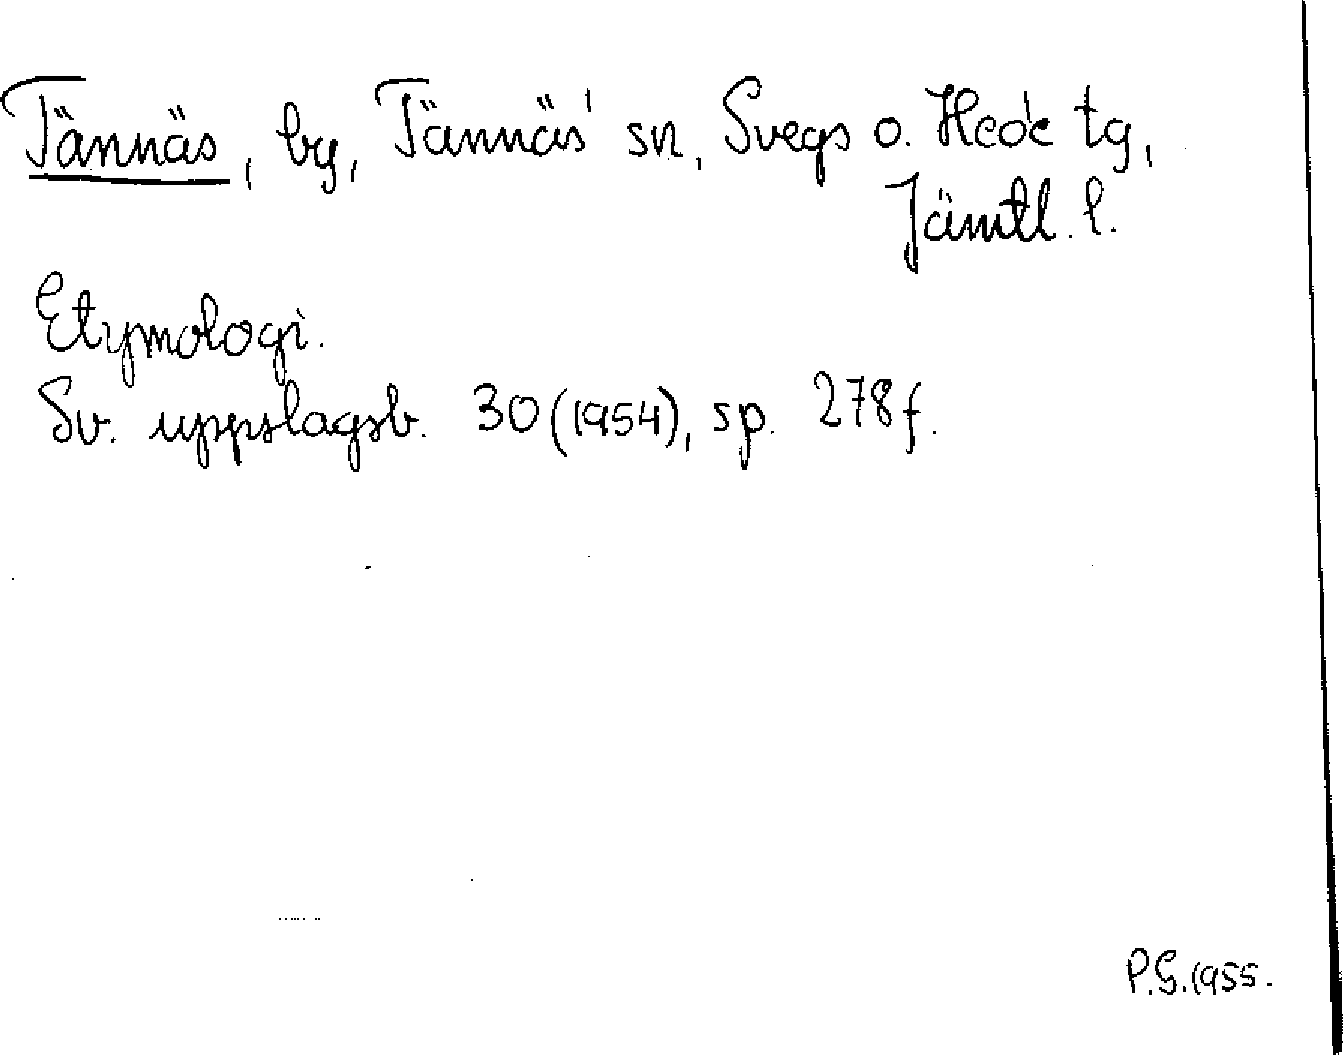 Tännäs, by, Tännäs' sn, Svegs o. Hede tg,
Jämtl. l.
Etymologi.
Sv. uppslagsb. 30 (1954), sp. 278 f.
P.G. 1955.